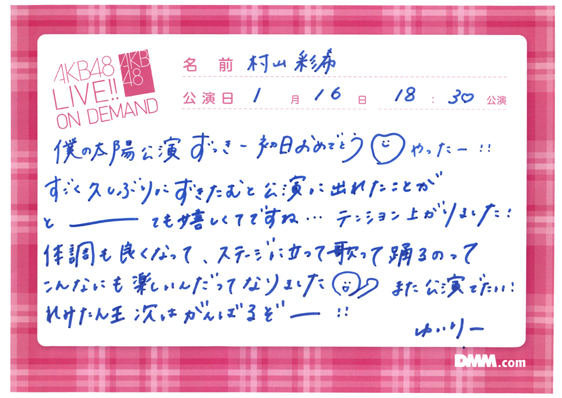 AKB48
LIVE!!
ON DEMAND
AKB
48
名 前 村山彩希
公演日 1 月 16 日 18 : 30 公演
僕の太陽公演 ずっきー初日おめでとう やったー!!
すごく久しぶりにずきたむと公演に出れたことが
と――ても嬉しくてですね… テンション上がりました!
体調も良くなって、ステージに立って歌って踊るのって
こんなにも楽しいんだってなりました また公演でたい!
れけたん王 次はがんばるぞー!!
ゆいりー
DMM.com